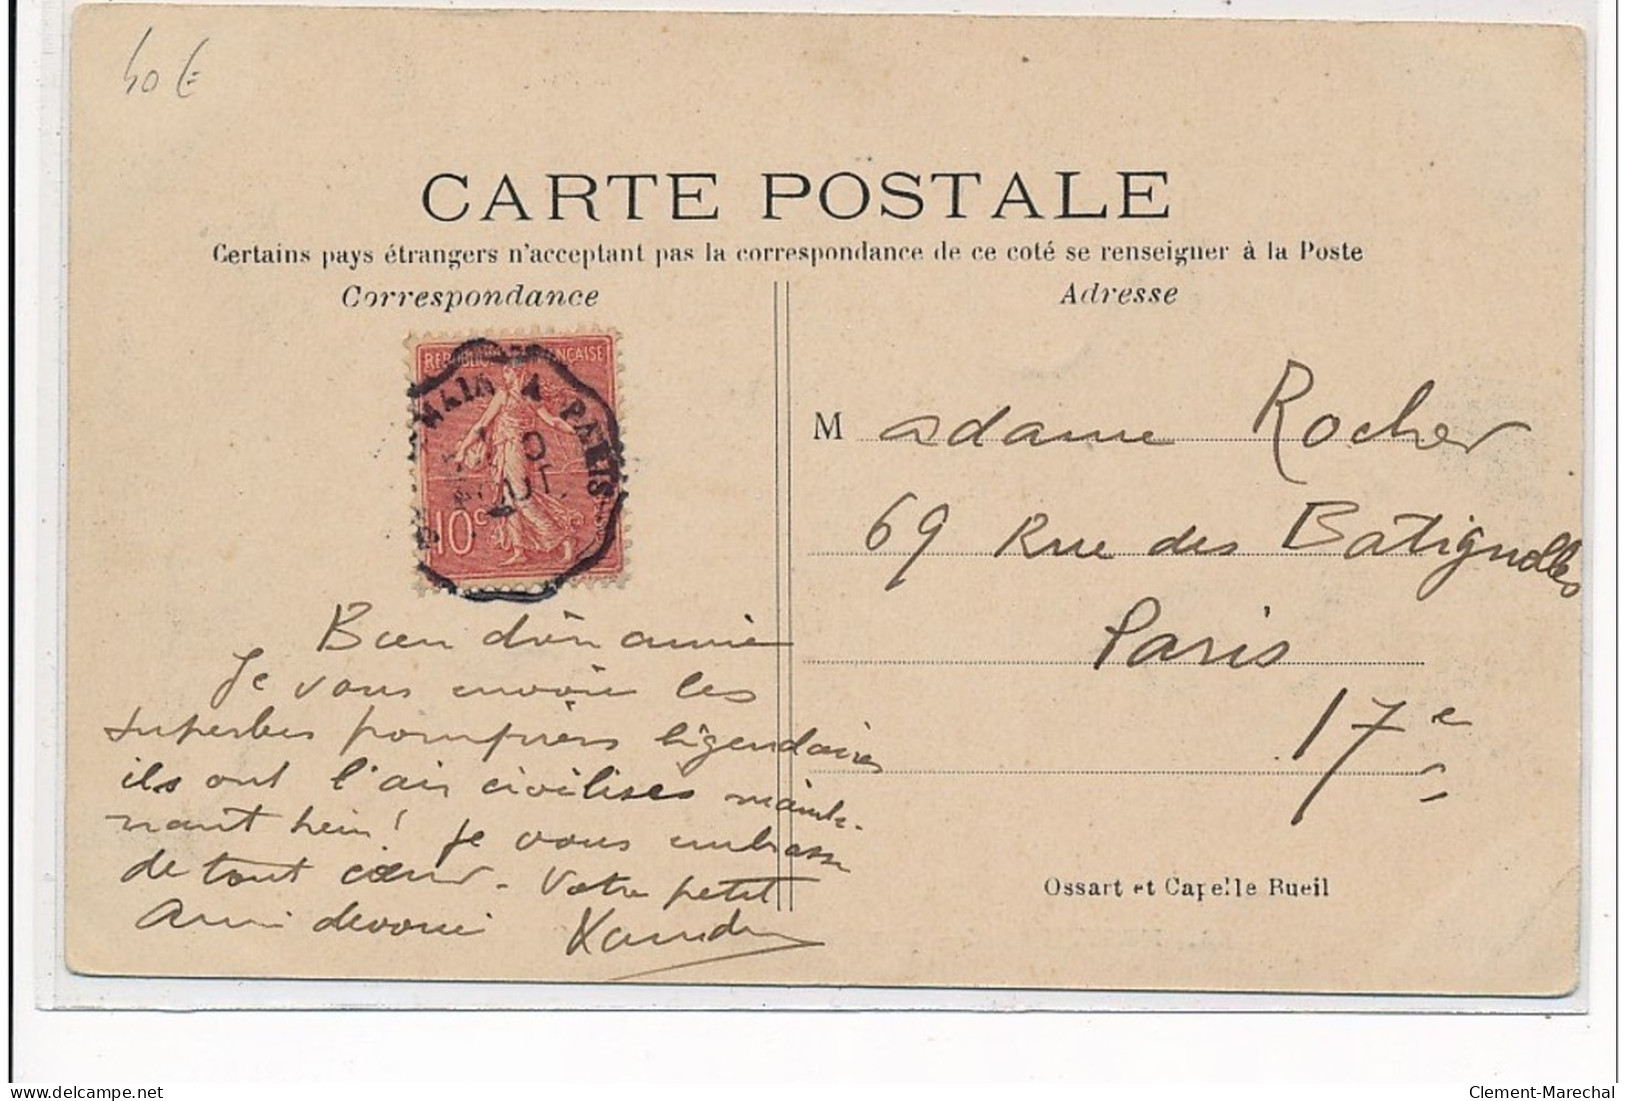 40 €
CARTE POSTALE
Certains pays étrangers n'acceptant pas la correspondance de ce coté se renseigner à la Poste
Correspondance
Adresse
10c
A PARIS
AOUT
Je vous envoie les
superbes pompiers légendaires
ils ont l'air civilisés mainte-
nant hein! Je vous embrasse
de tout cœur. Votre petit
Ami devoué
Madame Rocher
69 Rue des Batignolles
Paris
17e
Ossart et Capelle Rueil
delcampe.net
Clement-Marechal